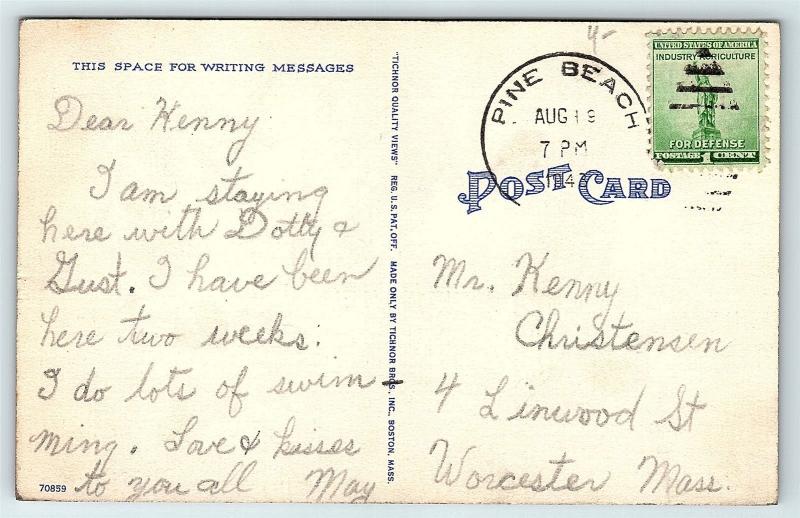 THIS SPACE FOR WRITING MESSAGES
Dear Kenny
I am staying
here with Dotty &
Gust. I have been
here two weeks.
I do lots of swim
ming. Love & kisses
to you all May
70859
"TICHNOR QUALITY VIEWS" REG. U.S. PAT. OFF. MADE ONLY BY TICHNOR BROS. INC., BOSTON, MASS.
PINE BEACH
AUG 19
7 PM
UNITED STATES OF AMERICA
INDUSTRY AGRICULTURE
FOR DEFENSE
POSTAGE 1 CENT
POST CARD
Mr. Kenny
Christensen
4 Linwood St
Worcester Mass.